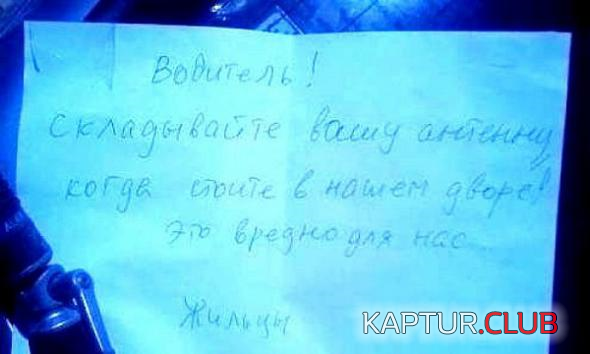 Водитель!
Складывайте вашу антенну
когда стоите в нашем дворе!
Это вредно для нас...
Жильцы
KAPTUR.CLUB